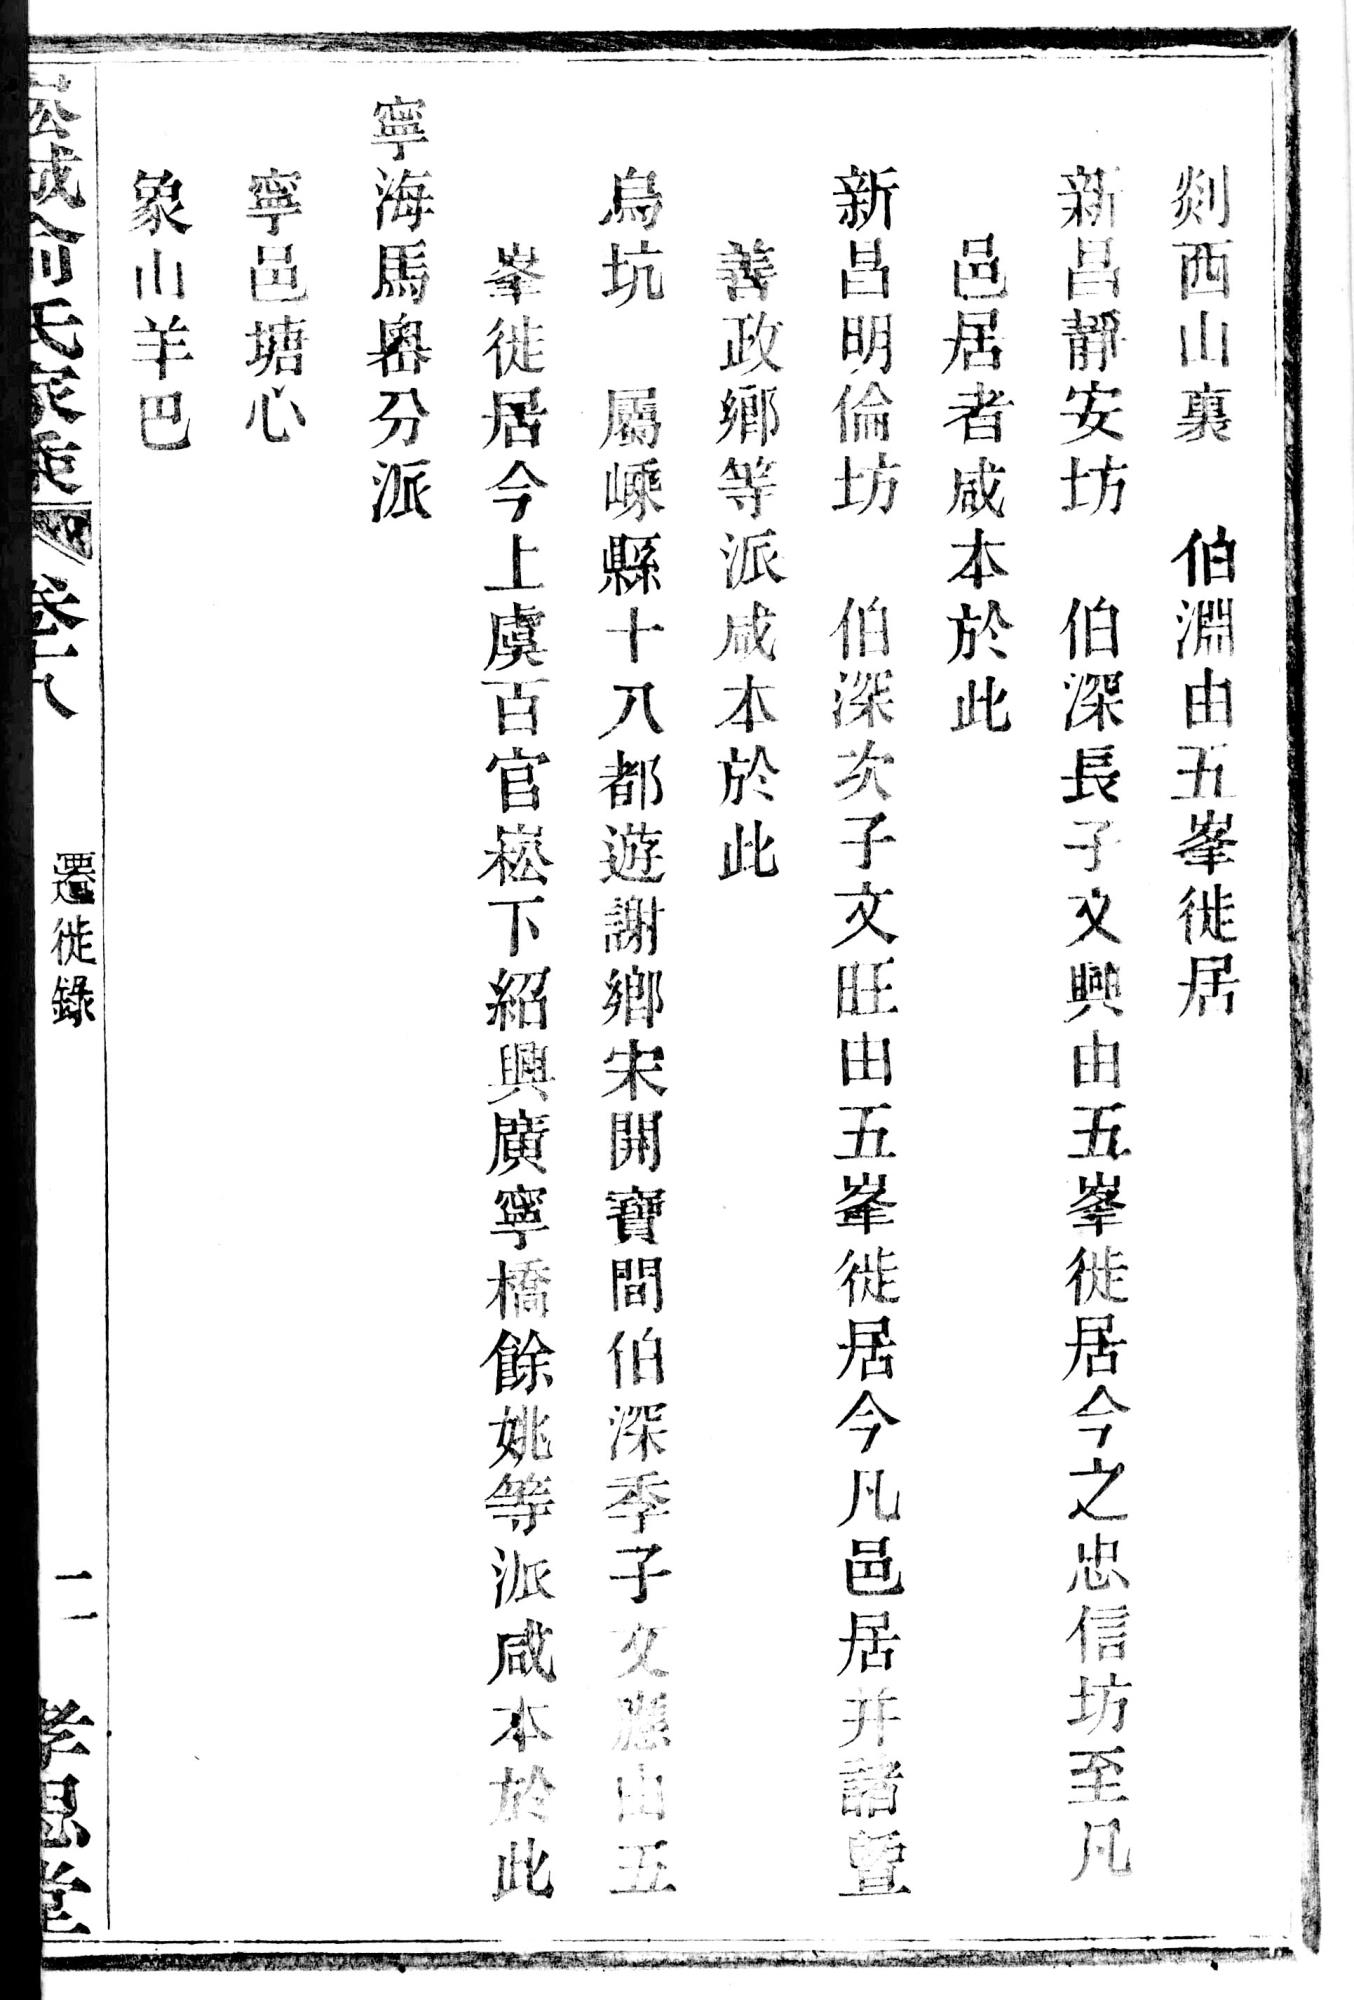 剡西山裏　伯淵由五峯徙居
新昌靜安坊　伯深長子文興由五峯徙居今之忠信坊至凡
邑居者咸本於此
新昌明倫坊　伯深次子文旺由五峯徙居今凡邑居并諸暨
善政鄉等派咸本於此
烏坑　屬嵊縣十八都遊謝鄉宋開寶間伯深季子文應由五
峯徙居今上虞百官崧下紹興廣寧橋餘姚等派咸本於此
寧海馬嶴分派
寧邑塘心
象山羊巴
崧城俞氏家乘　卷十八　遷徙錄　二　孝思堂